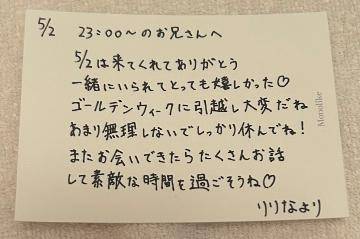 5/2 23:00～のお兄さんへ
5/2は来てくれてありがとう
一緒にいられてとっても嬉しかった♡
ゴールデンウィークに引越し大変だね
あまり無理しないでしっかり休んでね！
またお会いできたらたくさんお話
して素敵な時間を過ごそうね♡
りりなより
Monolike